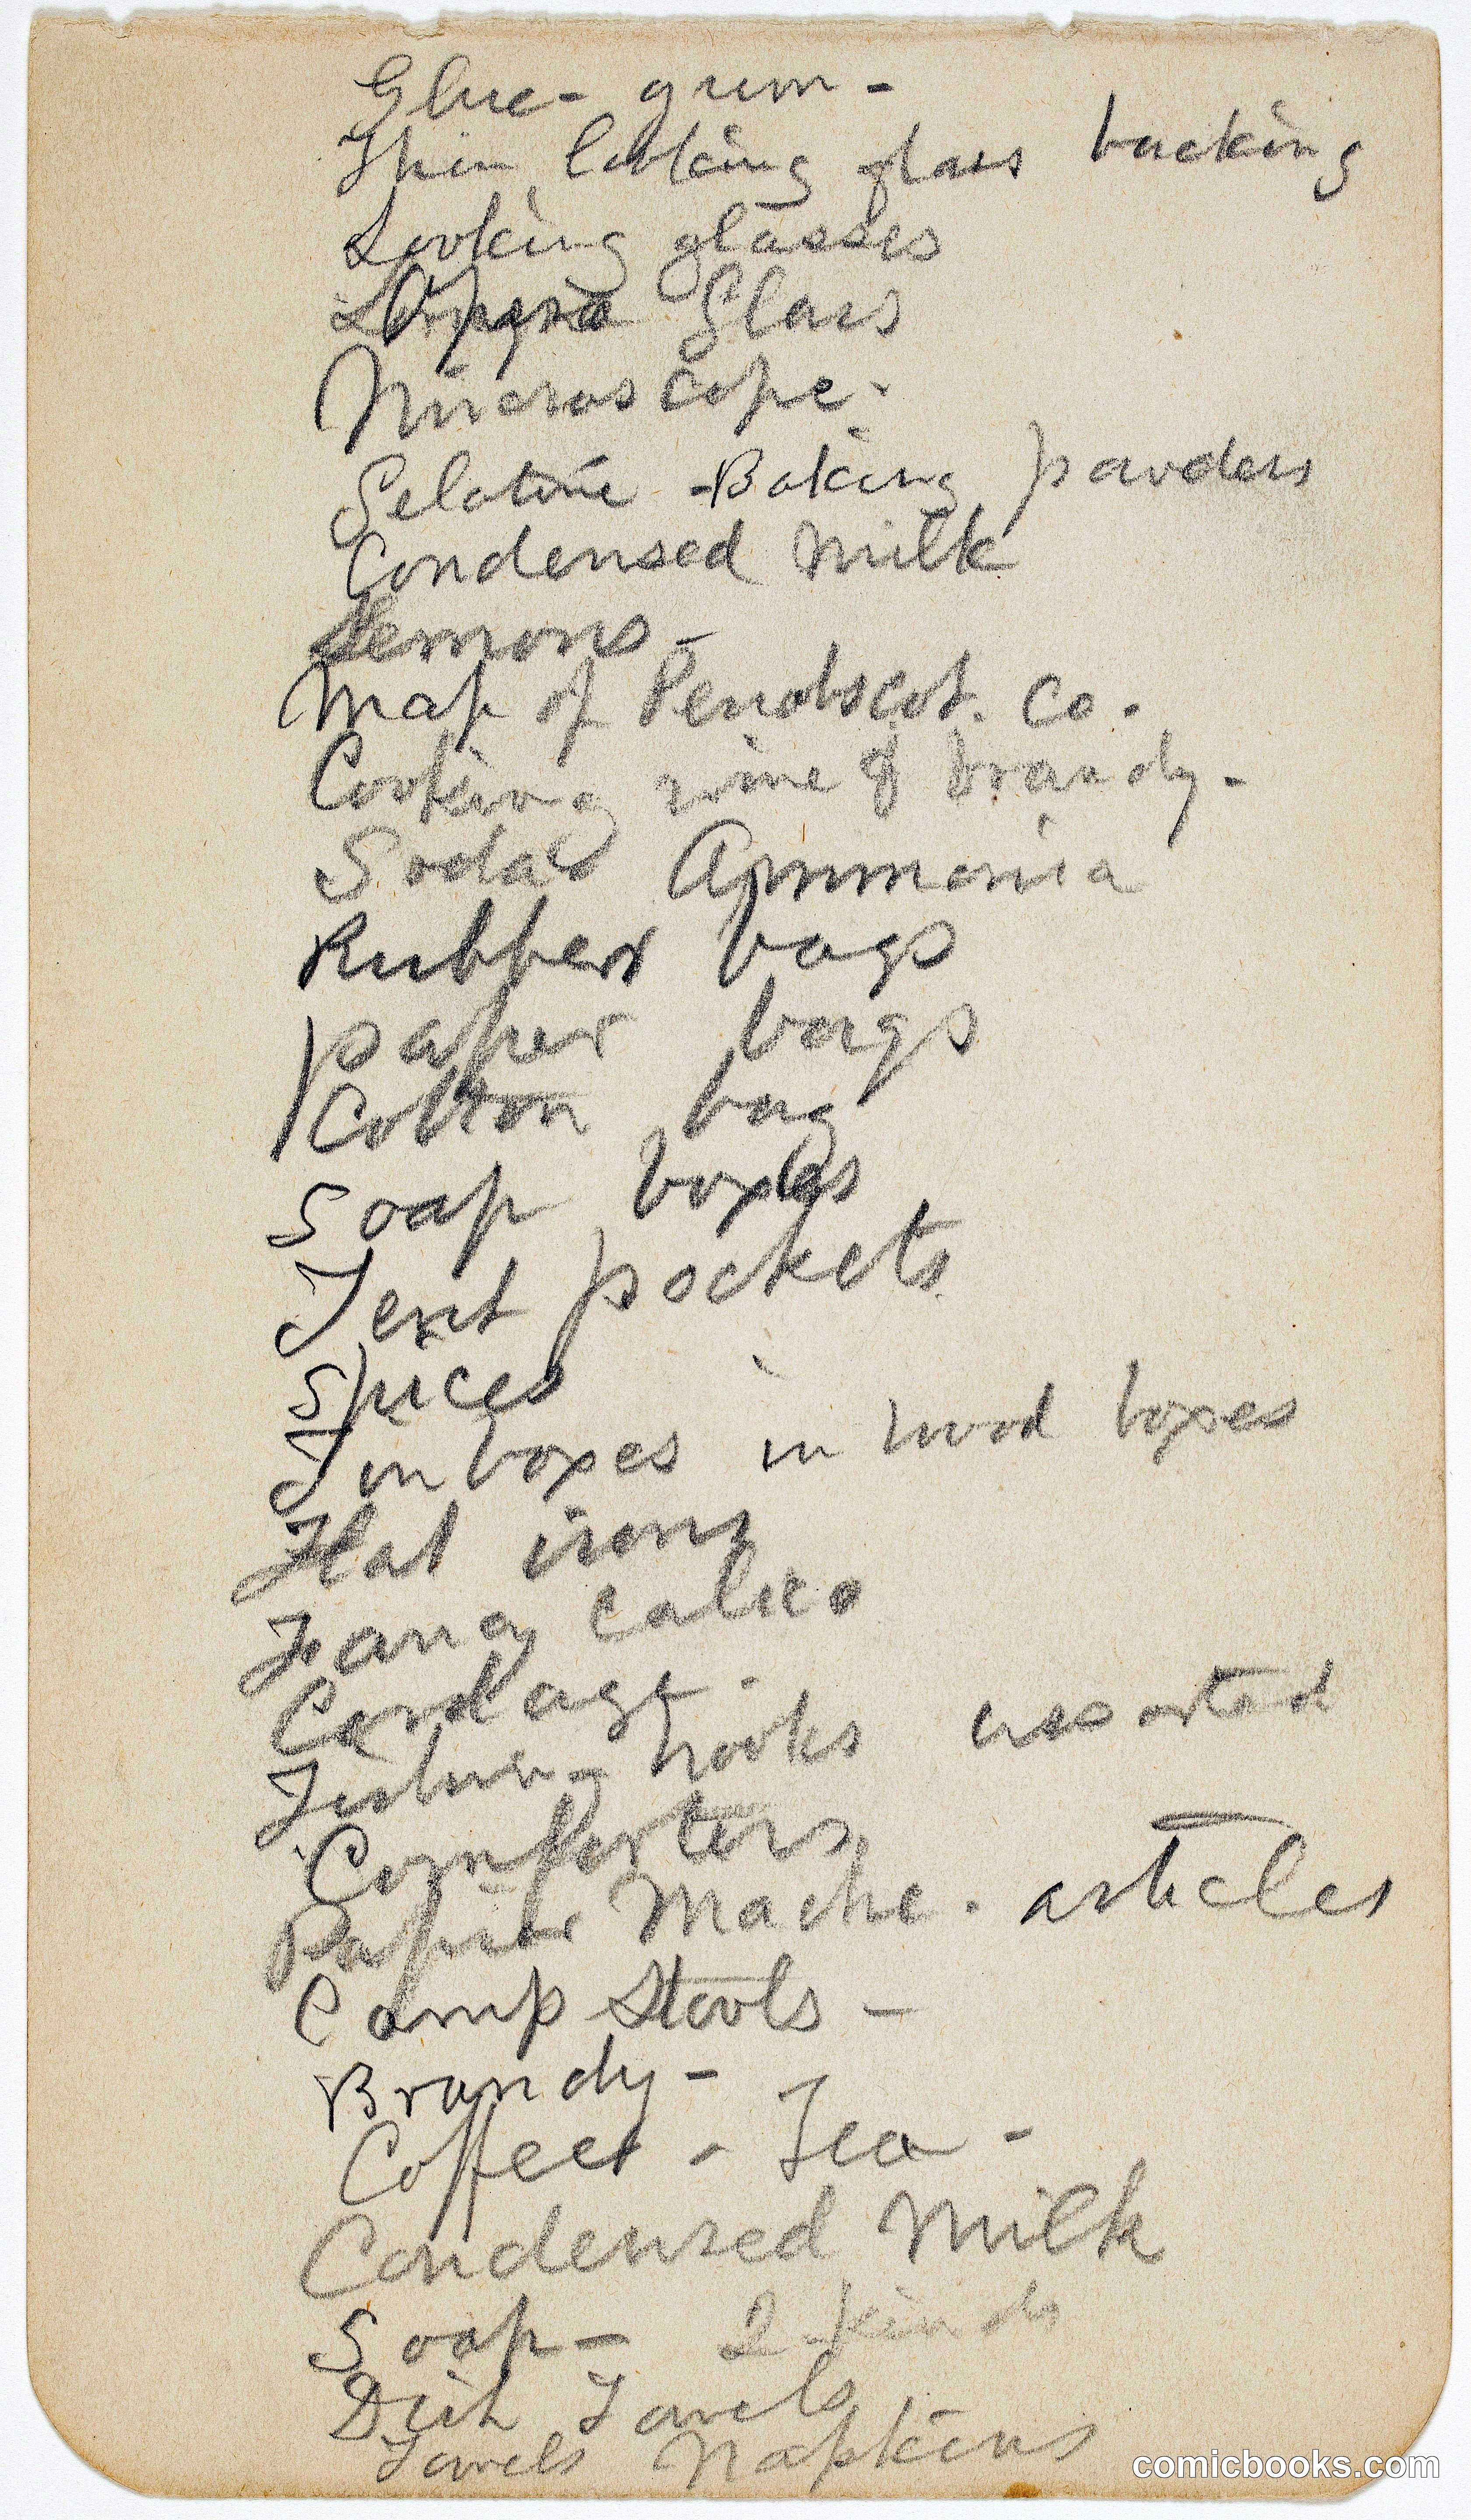 Glue - gum -
Thin looking glass backing
Looking glasses
Opera Glass
Microscope -
Gelatine - Baking powders
Condensed Milk
Lemons -
Map of Penobscot. Co.
Cooking wine & brandy -
Soda & Ammonia
Rubber bags
paper bags
Cotton bag
Soap boxes
Tent pockets
Spices
Tin boxes in wood boxes
Flat irons
Fancy calico
Cordage -
Fishing hooks assorted
Comforters
Papier Mache . articles
Camp Stools -
Brandy -
Coffee - Tea -
Condensed Milk
Soap - 2 kinds
Dish Towels
Towels Napkins
comicbooks.com